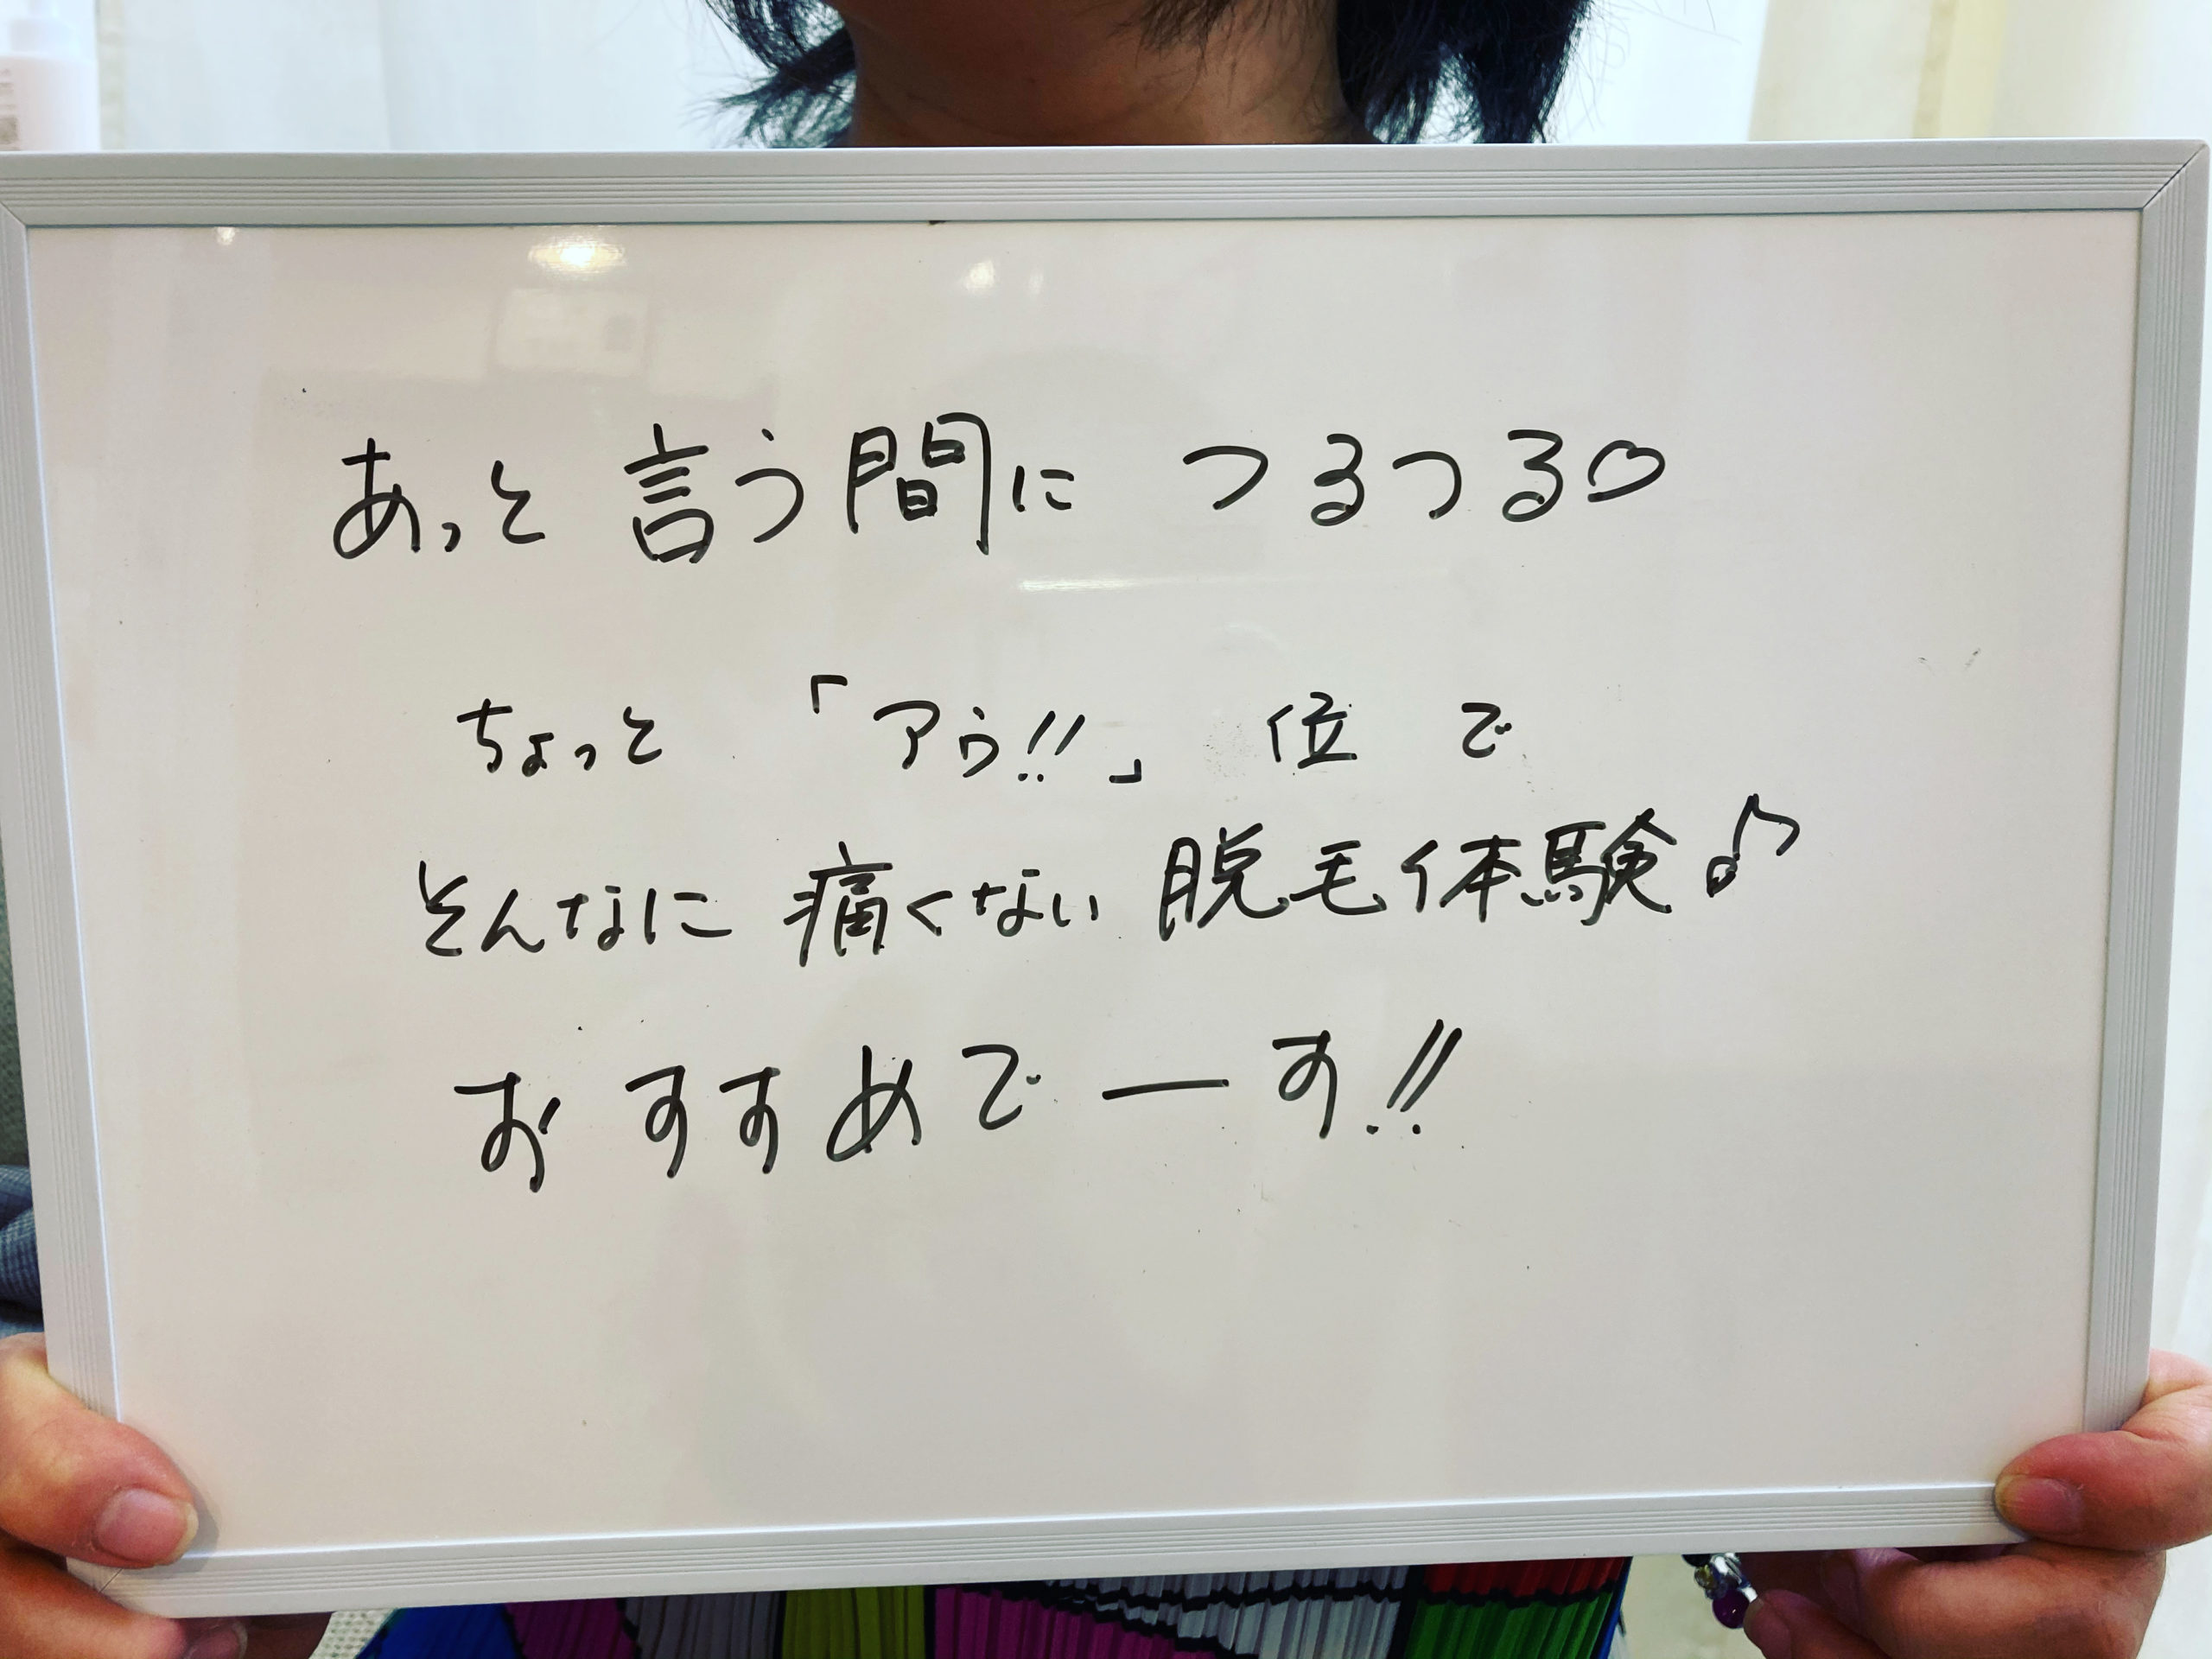 あっと言う間に つるつる♡
ちょっと 「アウ!!」 位 で
そんなに 痛くない 脱毛体験♪
おすすめでーす!!